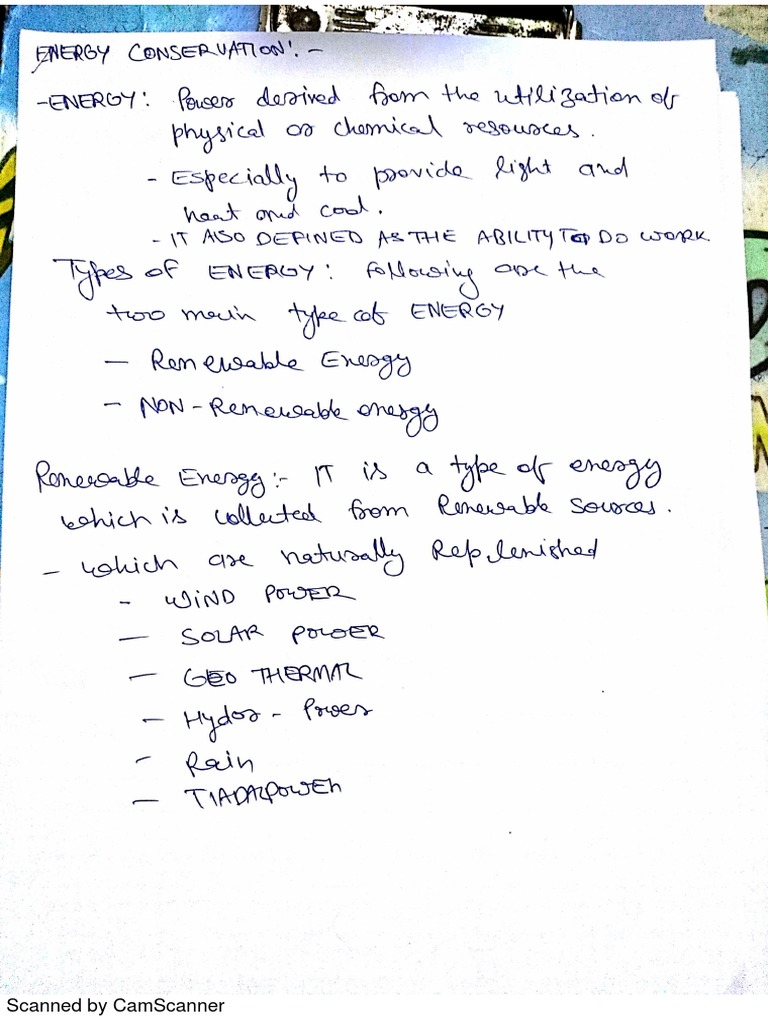 ENERGY CONSERVATION:-
-ENERGY: Power derived from the utilization of
physical or chemical resources.
- ESpecially to provide light and
heat and cool.
- IT ALSO DEFINED AS THE ABILITY TO DO WORK.
Types of ENERGY: following are the
two main type of ENERGY
- Renewable Energy
- NON-Renewable energy
Renewable Energy:- IT is a type of energy
which is collected from Renewable Sources.
- which are naturally Replenished
- WIND POWER
- SOLAR POWER
- GEO THERMAL
- Hydro - Power
- Rain
- TIADALPOWER
Scanned by CamScanner